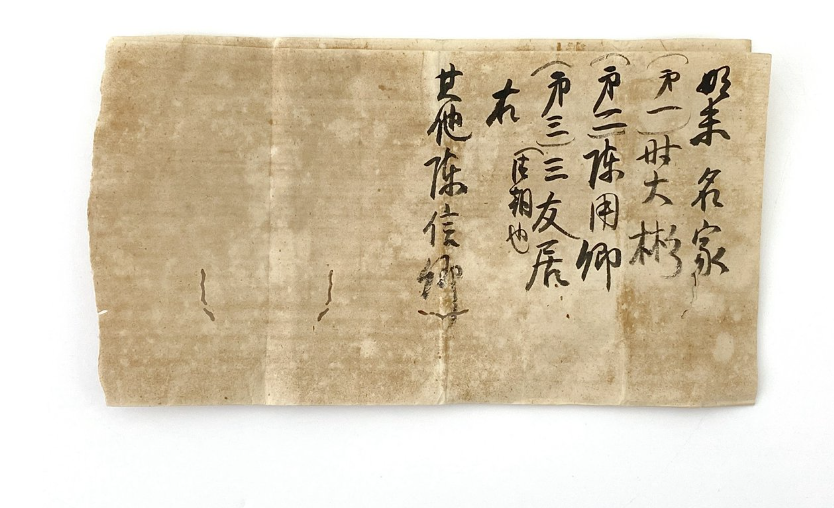 明末名家
(第一)時大彬
(第二)陳用卿
(第三)三友居
右
其他陳信卿